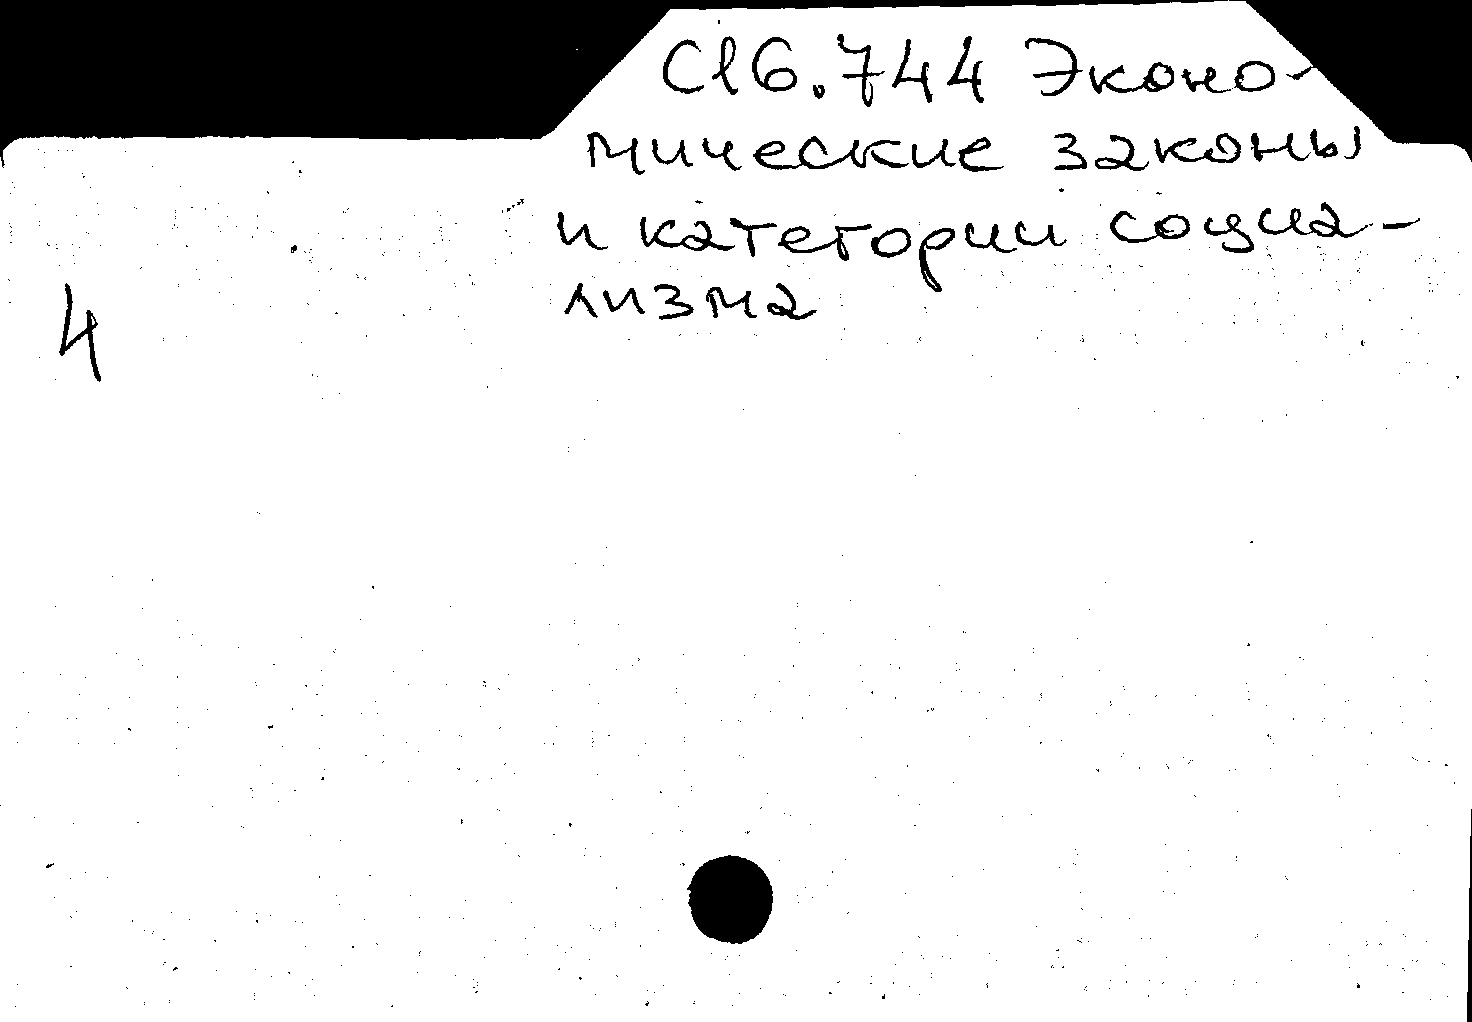 С16.744 Эконо-
мические законы
и категории социа-
лизма
4